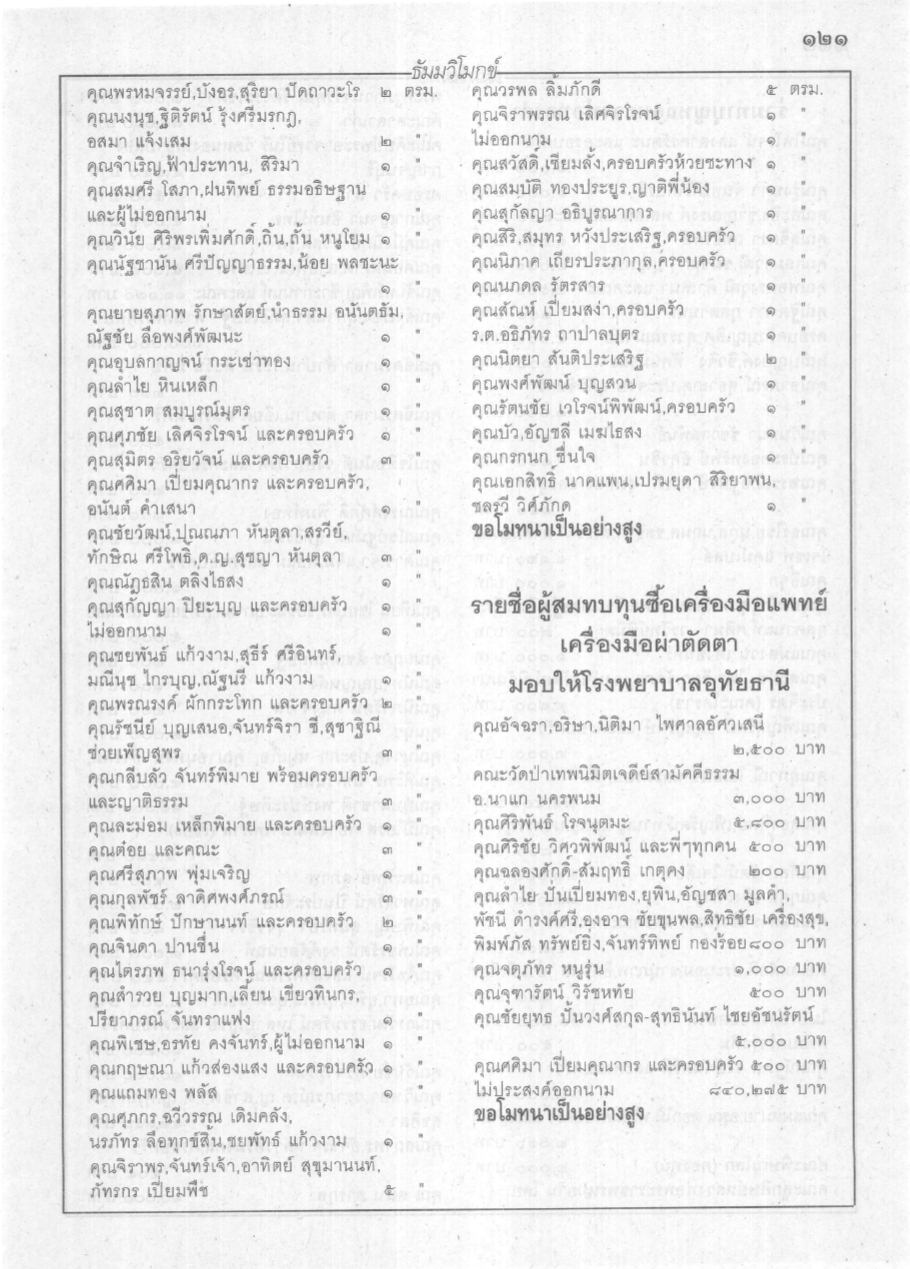 ๑๒๑
ธัมมวิโมกข์
คุณพรหมจรรย์,บังอร,สุริยา ปัดถาวะโร ๒ ตรม.
คุณนงนุช,ฐิติรัตน์ รุ้งศรีมรกฎ,
อสมา แจ้งเสม ๒ "
คุณจำเริญ,ฟ้าประทาน, สิริมา ๑ "
คุณสมศรี โสภา,ฝนทิพย์ ธรรมอธิษฐาน
และผู้ไม่ออกนาม ๑ "
คุณวินัย ศิริพรเพิ่มศักดิ์,ถิ้น,ถั้น หนูโยม ๑ "
คุณนัฐชานัน ศรีปัญญาธรรม,น้อย พลชะนะ
๑ "
คุณยายสุภาพ รักษาสัตย์,นำธรรม อนันตธัม,
ณัฐชัย ลือพงศ์พัฒนะ ๑ "
คุณอุบลกาญจน์ กระเช่าทอง ๑ "
คุณลำไย หินเหล็ก ๑ "
คุณสุชาต สมบูรณ์มุตร ๑ "
คุณศุภชัย เลิศจิรโรจน์ และครอบครัว ๑ "
คุณสุมิตร อริยวัจน์ และครอบครัว ๓ "
คุณศศิมา เปี่ยมคุณากร และครอบครัว,
อนันต์ คำเสนา ๑ "
คุณชัยวัฒน์,ปุณณภา หันตุลา,สรวีย์,
ทักษิณ ศรีโพธิ์,ด.ญ.สุชญา หันตุลา ๓ "
คุณณัฏธสิน ตลิ่งไธสง ๑ "
คุณสุกัญญา ปิยะบุญ และครอบครัว ๑ "
ไม่ออกนาม ๑ "
คุณชยพันธ์ แก้วงาม,สุธีร์ ศรีอินทร์,
มณีนุช ไกรบุญ,ณัฐนรี แก้วงาม ๑ "
คุณพรณรงค์ ผักกระโทก และครอบครัว ๒ "
คุณรัชนีย์ บุญเสนอ,จันทร์จิรา ซี,สุชาฐิณี
ช่วยเพ็ญสุพร ๓ "
คุณกลีบลัว จันทร์พิมาย พร้อมครอบครัว
และญาติธรรม ๓ "
คุณละม่อม เหล็กพิมาย และครอบครัว ๑ "
คุณต๋อย และคณะ ๓ "
คุณศรีสุภาพ พุ่มเจริญ ๑ "
คุณกุลพัชร์ ลาดิศพงศ์ภรณ์ ๓ "
คุณพิทักษ์ ปักษานนท์ และครอบครัว ๒ "
คุณจินดา ปานชื่น ๑ "
คุณไตรภพ ธนารุ่งโรจน์ และครอบครัว ๑ "
คุณสำรวย บุญมาก,เลี้ยน เขียวทินกร,
ปรียาภรณ์ จันทราแฟง ๑ "
คุณพิเชษ,อรทัย คงจันทร์,ผู้ไม่ออกนาม ๑ "
คุณกฤษณา แก้วส่องแสง และครอบครัว ๑ "
คุณแถมทอง พลัส ๑ "
คุณศุภกร,ฉวีวรรณ เดิมคลัง,
นรภัทร ลือทุกข์สิ้น,ชยพัทธ์ แก้วงาม ๑ "
คุณจิราพร,จันทร์เจ้า,อาทิตย์ สุขุมานนท์,
ภัทรกร เปี่ยมพืช ๕ "
คุณวรพล ลิ้มภักดี ๕ ตรม.
คุณจิราพรรณ เลิศจิรโรจน์ ๑ "
ไม่ออกนาม ๑ "
คุณสวัสดิ์,เซียมลั้ง,ครอบครัวห้วยชะทาง ๑ "
คุณสมบัติ ทองประยูร,ญาติพี่น้อง ๑ "
คุณสุกัลญา อธิบูรณาการ ๑ "
คุณสิริ,สมุทร หวังประเสริฐ,ครอบครัว ๑ "
คุณนิภาค เถียรประภากุล,ครอบครัว ๑ "
คุณนภดล รัตรสาร ๑ "
คุณสัณห์ เปี่ยมสง่า,ครอบครัว ๑ "
ร.ต.อธิภัทร ถาปาลบุตร ๑ "
คุณนิตยา สันติประเสริฐ ๒ "
คุณพงศ์พัฒน์ บุญสวน ๑ "
คุณรัตนชัย เวโรจน์พิพัฒน์,ครอบครัว ๑ "
คุณบัว,อัญชลี เมฆไธสง ๑ "
คุณกรกนก ชื่นใจ ๑ "
คุณเอกสิทธิ์ นาคแพน,เปรมยุดา สิริยาพน,
ชลรวี วิศัภักด ๑ "
ขอโมทนาเป็นอย่างสูง
รายชื่อผู้สมทบทุนซื้อเครื่องมือแพทย์
เครื่องมือผ่าตัดตา
มอบให้โรงพยาบาลอุทัยธานี
คุณอัจฉรา,อริษา,นิติมา ไพศาลอัศวเสนี
๒,๕๐๐ บาท
คณะวัดป่าเทพนิมิตเจดีย์สามัคคีธรรม
อ.นาแก นครพนม ๓,๐๐๐ บาท
คุณศิริพันธ์ โรจนุตมะ ๕,๘๐๐ บาท
คุณศิริชัย วิศวพิพัฒน์ และพี่ๆทุกคน ๕๐๐ บาท
คุณฉลองศักดิ์-สัมฤทธิ์ เกตุคง ๒๐๐ บาท
คุณลำไย-ปั่นเปี่ยมทอง,ยุพิน,อัญชสา มูลคำ,
พัชนี ดำรงค์ศรี,องอาจ ชัยขุนพล,สิทธิชัย เครื่องสุข,
พิมพ์ภัส ทรัพย์ยิ่ง,จันทร์ทิพย์ กองร้อย ๘๐๐ บาท
คุณจตุภัทร หนูรุ่น ๑,๐๐๐ บาท
คุณจุฑารัตน์ วิรัชหทัย ๕๐๐ บาท
คุณชัยยุทธ ปั้นวงศ์สกุล-สุทธินันท์ ไชยอัชนรัตน์
๕,๐๐๐ บาท
คุณศศิมา เปี่ยมคุณากร และครอบครัว ๕๐๐ บาท
ไม่ประสงค์ออกนาม ๘๔๐,๒๗๕ บาท
ขอโมทนาเป็นอย่างสูง